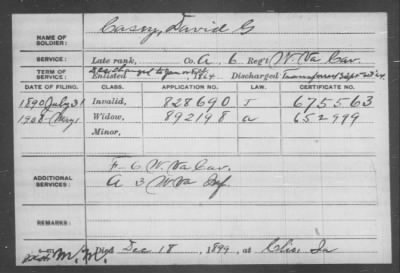 Casey, David G
NAME OF SOLDIER:
SERVICE: Late rank, Co. A, 6 Reg't W. Va Cav.
TERM OF SERVICE: Enlisted 1864 Discharged
DATE OF FILING. CLASS. APPLICATION NO. LAW. CERTIFICATE NO.
1890 July 31 Invalid, 828690 J 675563
1908 May 1 Widow, 892198 a 652999
Minor,
ADDITIONAL SERVICES:
F-6 W. Va Cav.
A 3 W Va Inf.
REMARKS:
Died Dec 18, 1899, at